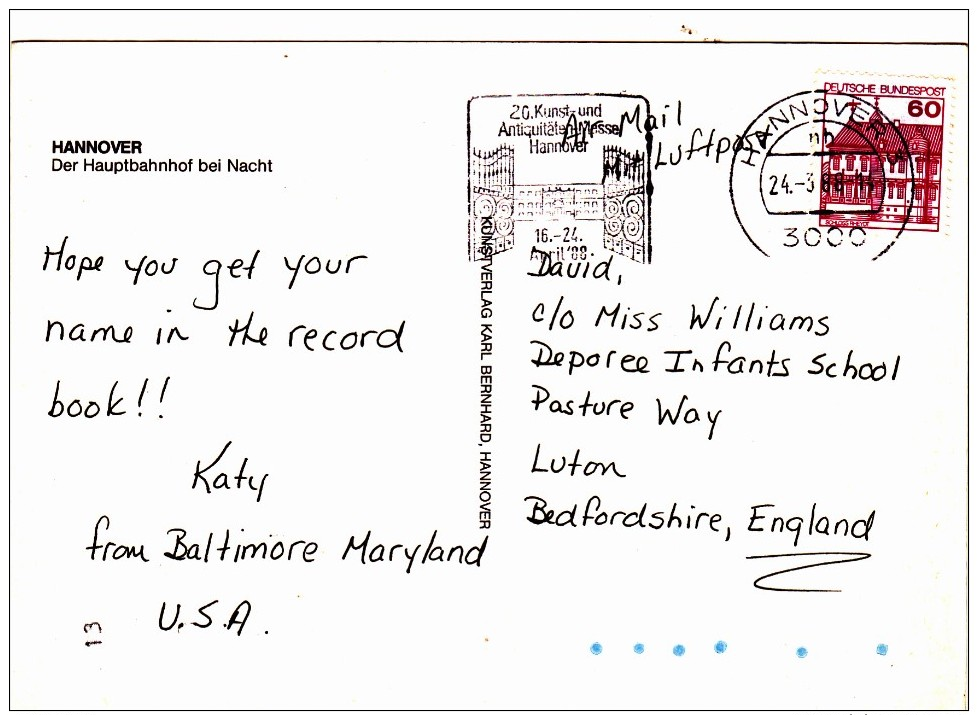 HANNOVER
Der Hauptbahnhof bei Nacht
20. Kunst- und
Antiquitäten-Messe
Hannover
16.-24.
April '88
Air Mail
Mit Luftpost
HANNOVER
nh
24.-3.88-
3000
DEUTSCHE BUNDESPOST
60
Hope you get your
name in the record
book!!
Katy
from Baltimore Maryland
U.S.A.
13
KUNSTVERLAG KARL BERNHARD, HANNOVER
David,
c/o Miss Williams
Deporee Infants School
Pasture Way
Luton
Bedfordshire, England